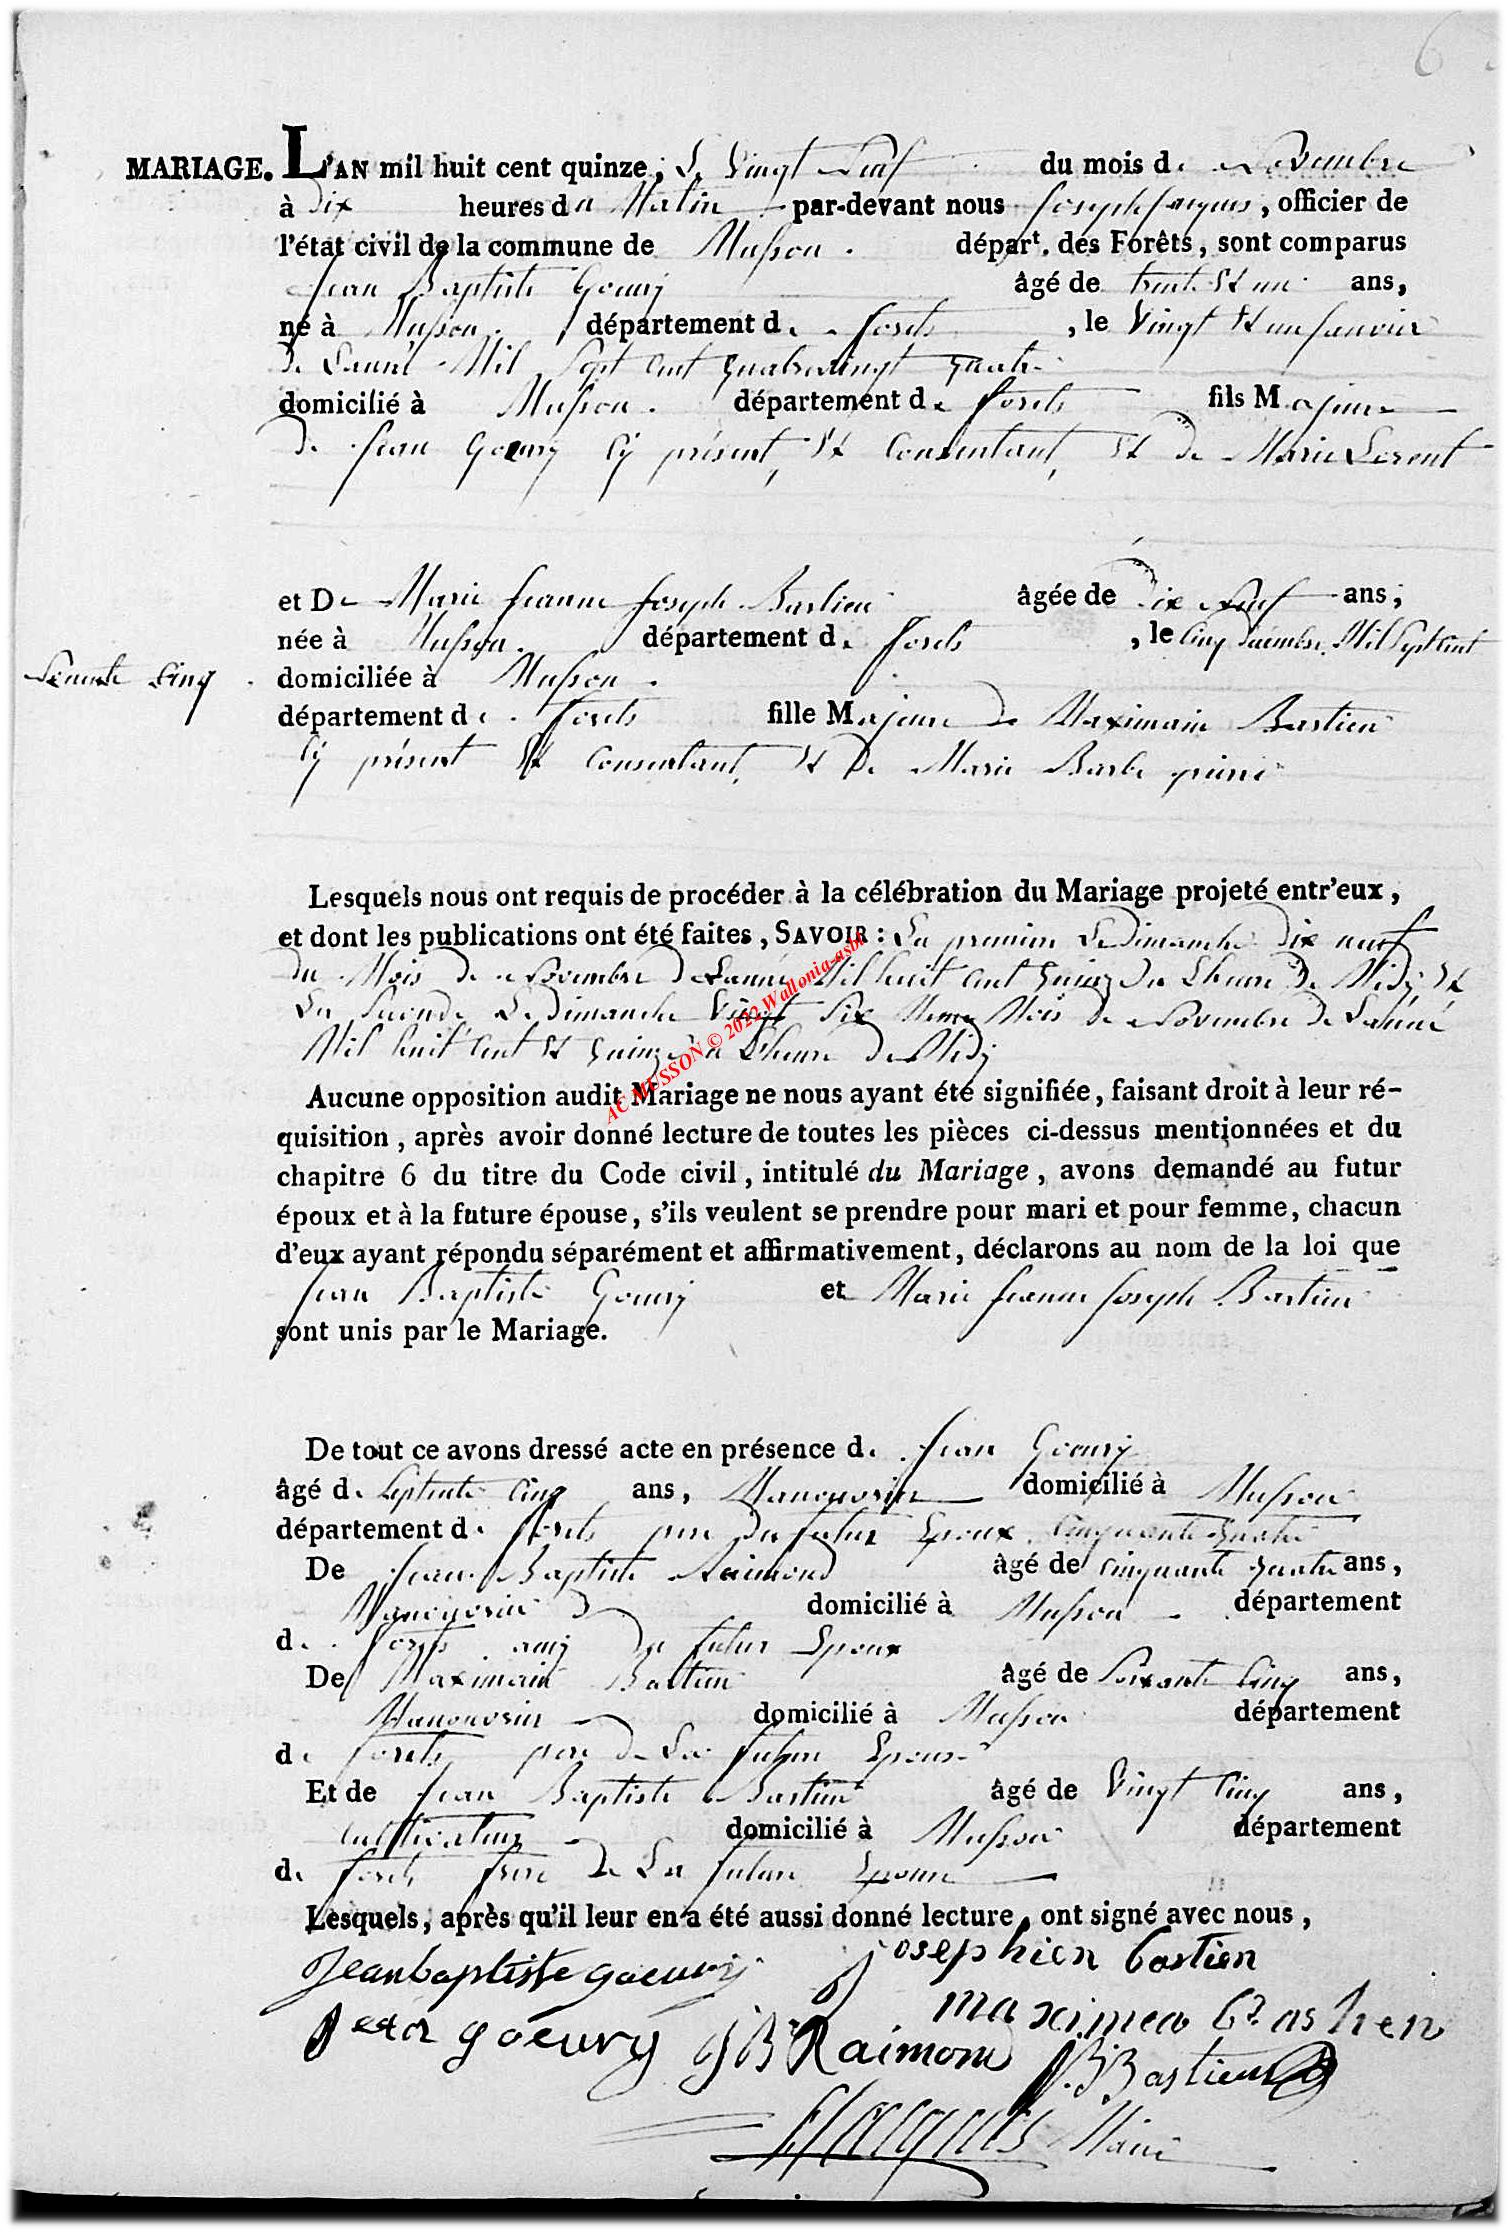 6
MARIAGE. L'AN mil huit cent quinze, Le Vingt Neuf du mois de Novembre
à dix heures du Matin par-devant nous Joseph Jacques, officier de
l'état civil de la commune de Musson. départ. des Forêts, sont comparus
Jean Baptiste Goeury âgé de trente et un ans,
né à Musson. département de forets, le Vingt et un Janvier
de Lannée Mil Sept cent quatrevingt quatre
domicilié à Musson. département de forets fils Majeur
de Jean Goeury Cy présent, Et Consentant, Et de Marie Lorent
et De Marie Jeanne Joseph Bastien âgée de Dix Neuf ans;
née à Musson. département de forets, le Cinq Mil Sept Cent
Cinq domiciliée à Musson.
département de forets fille Majeure de Maximain Bastien
Cy présent Et Consentant, Et De Marie Barbe
Lesquels nous ont requis de procéder à la célébration du Mariage projeté entr'eux,
et dont les publications ont été faites, SAVOIR: La premiere Le Dimanche Dix neuf
du Mois de Novembre de Lannée Mil huit cent quinze a Lheure De Midy Et
La Seconde Le Dimanche Vingt Six Meme Mois de Novembre de Lannée
Mil huit Cent Et quinze a Lheure de Midy
Aucune opposition audit Mariage ne nous ayant été signifiée, faisant droit à leur ré-
quisition, après avoir donné lecture de toutes les pièces ci-dessus mentionnées et du
chapitre 6 du titre du Code civil, intitulé du Mariage, avons demandé au futur
époux et à la future épouse, s'ils veulent se prendre pour mari et pour femme, chacun
d'eux ayant répondu séparément et affirmativement, déclarons au nom de la loi que
Jean Baptiste Goeury et Marie Jeanne Joseph Bastien
sont unis par le Mariage.
De tout ce avons dressé acte en présence de Jean Goeury
âgé de Septente Cinq ans, Manouvrier domicilié à Musson
département de forets pere Du futur Epoux Cinquante quatre
De Jean Baptiste Raimond âgé de cinquante quatre ans,
Manouvrier domicilié à Musson département
de forets amy Du futur Epoux
De Maximain Bastien âgé de Soixante Cinq ans,
Manouvrier domicilié à Musson département
de forets pere de La future Epouse
Et de Jean Baptiste Bastien âgé de Vingt Cinq ans,
cultivateur domicilié à Musson département
de forets frere de La future Epouse
Lesquels, après qu'il leur en a été aussi donné lecture, ont signé avec nous,
Jean baptiste goeury josephien bastien
Jean goeury JB Raimond
J.B. Bastien
Jacques Maire
AC MUSSON © 2022 Wallonia-asbl